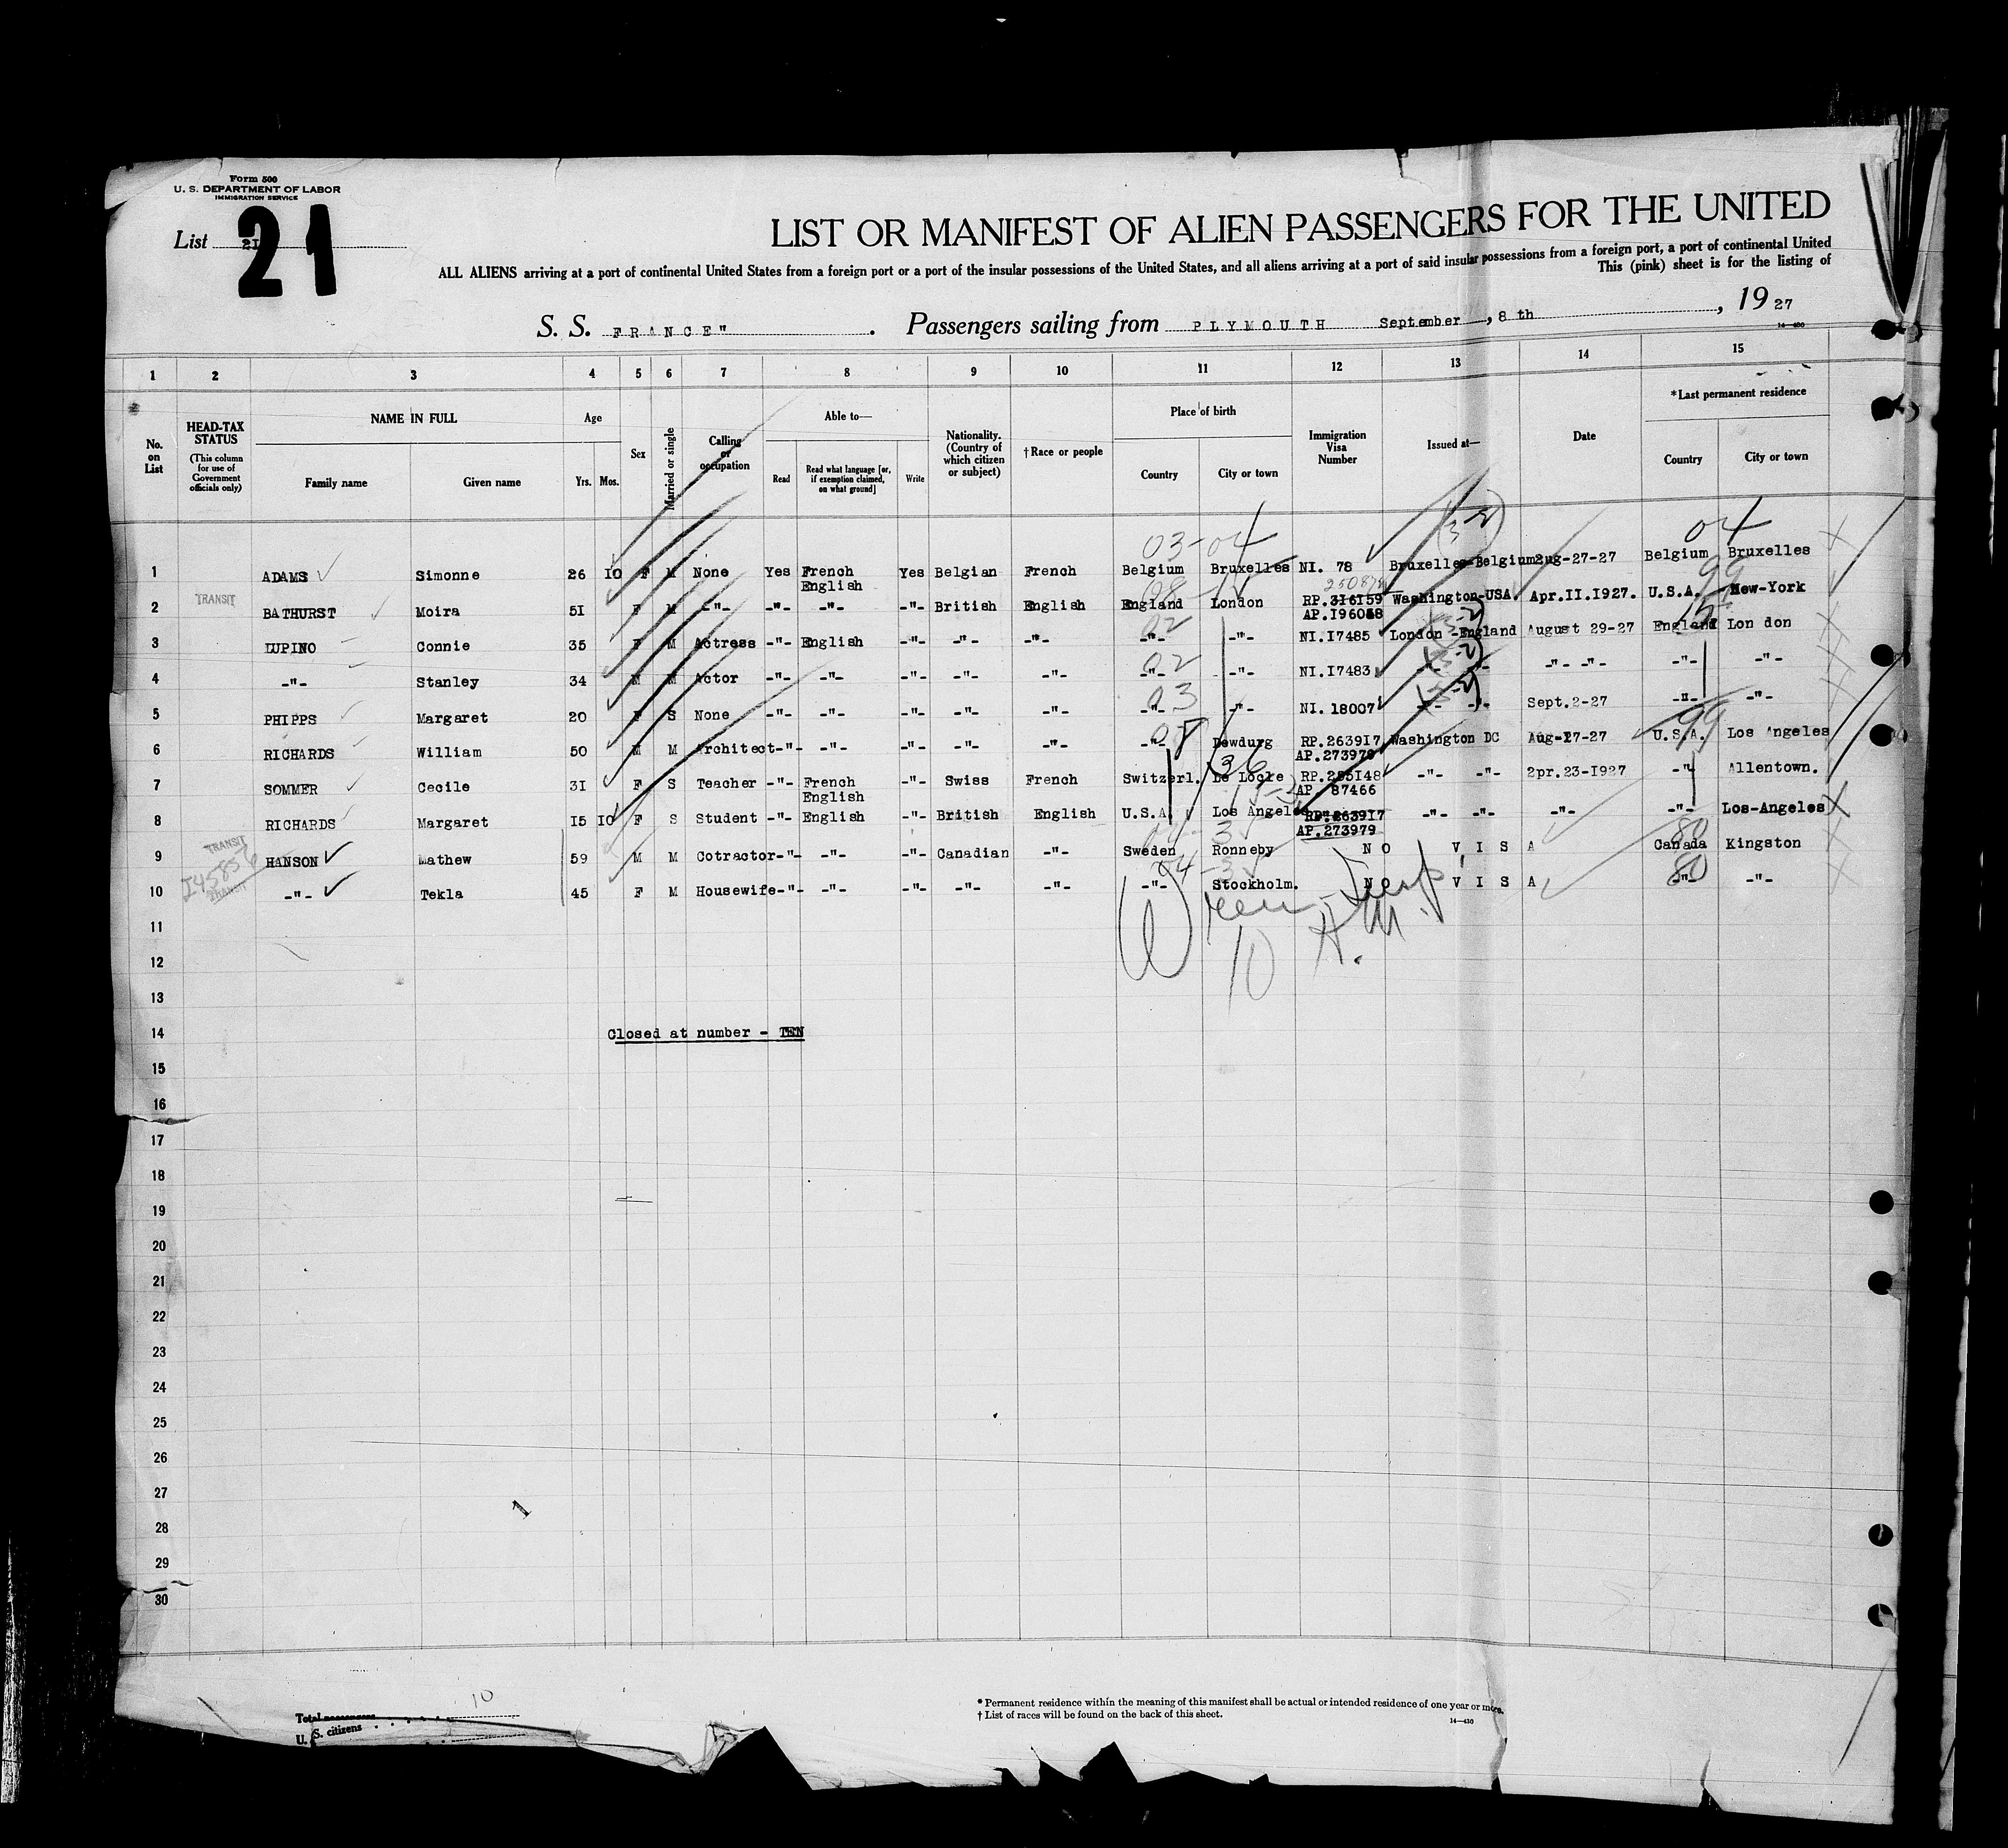 Form 500
U. S. DEPARTMENT OF LABOR
IMMIGRATION SERVICE
List 21
21
LIST OR MANIFEST OF ALIEN PASSENGERS FOR THE UNITED
ALL ALIENS arriving at a port of continental United States from a foreign port or a port of the insular possessions of the United States, and all aliens arriving at a port of said insular possessions from a foreign port, a port of continental United
This (pink) sheet is for the listing of
S. S. FRANCE" . Passengers sailing from PLYMOUTH September , 8 th , 19 27
14-430
1 2 3 4 5 6 7 8 9 10 11 12 13 14 15
No. on List
HEAD-TAX STATUS (This column for use of Government officials only)
NAME IN FULL Family name Given name
Age Yrs. Mos.
Sex
Married or single
Calling or occupation
Able to— Read Read what language [or, if exemption claimed, on what ground] Write
Nationality. (Country of which citizen or subject)
†Race or people
Place of birth Country City or town
Immigration Visa Number
Issued at—
Date
*Last permanent residence Country City or town
03-04 04
1 ADAMS Simonne 26 10 F M None Yes French Yes Belgian French Belgium Bruxelles NI. 78 Bruxelles-Belgium 2ug-27-27 Belgium Bruxelles
English
TRANSIT
2 BATHURST Moira 51 F M -"- -"- -"- -"- British English England London RP.316159 Washington-USA. Apr.II.I927. U.S.A. New-York
AP.I96048
3 LUPINO Connie 35 F M Actress -"- English -"- -"- -"- -"- -"- NI.I7485 London -England August 29-27 England Lon don
4 -"- Stanley 34 M M Actor -"- -"- -"- -"- -"- -"- -"- NI.I7483 -"- -"- -"- -"- -"- -"-
5 PHIPPS Margaret 20 F S None -"- -"- -"- -"- -"- -"- -"- NI. 18007 -"- -"- Sept.2-27 -"- -"-
6 RICHARDS William 50 M M Architect -"- -"- -"- -"- -"- -"- Dewdurg RP.2639I7 Washington DC Aug-17-27 U.S.A. Los Angeles
AP.273979
7 SOMMER Cecile 3I F S Teacher -"- French -"- Swiss French Switzerl. Le Locle RP.285I48 -"- -"- 2pr.23-I927 -"- Allentown.
English AP. 87466
8 RICHARDS Margaret I5 IO F S Student -"- English -"- British English U.S.A. Los Angeles RP.2639I7 -"- -"- -"- -"- Los-Angeles
AP.273979
TRANSIT
9 HANSON Mathew 59 M M Cotractor -"- -"- -"- Canadian -"- Sweden Ronneby NO VISA Canada Kingston
TRANSIT
10 -"- Tekla 45 F M Housewife -"- -"- -"- -"- -"- -"- Stockholm. NO VISA -"- -"-
11
12
10
13
14 Closed at number - TEN
15
16
17
18
19
20
21
22
23
24
25
26
27
28
29
30
Total passengers 10
U. S. citizens
* Permanent residence within the meaning of this manifest shall be actual or intended residence of one year or more.
† List of races will be found on the back of this sheet.
14-430